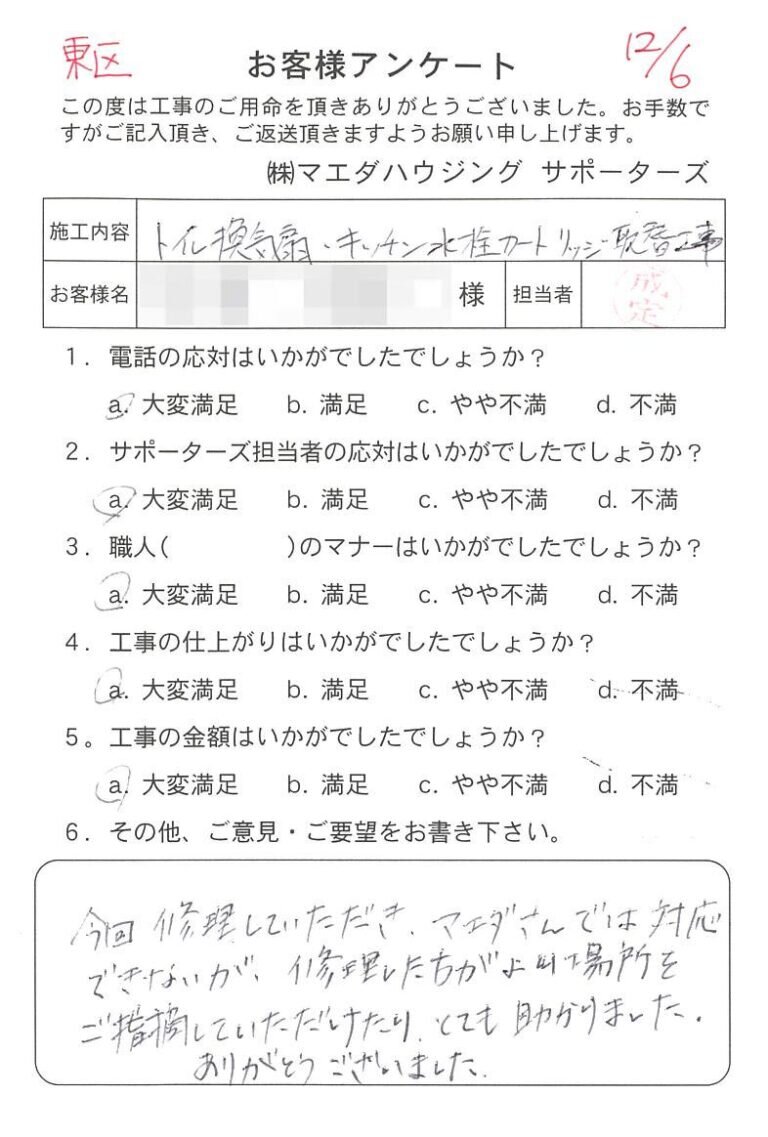 東区
お客様アンケート
12/6
この度は工事のご用命を頂きありがとうございました。お手数で
すがご記入頂き、ご返送頂きますようお願い申し上げます。
㈱マエダハウジング サポーターズ
施工内容 トイレ換気扇・キッチン水栓カートリッジ取替工事
お客様名 様 担当者 成定
1. 電話の応対はいかがでしたでしょうか?
a. 大変満足 b. 満足 c. やや不満 d. 不満
2. サポーターズ担当者の応対はいかがでしたでしょうか?
a. 大変満足 b. 満足 c. やや不満 d. 不満
3. 職人( )のマナーはいかがでしたでしょうか?
a. 大変満足 b. 満足 c. やや不満 d. 不満
4. 工事の仕上がりはいかがでしたでしょうか?
a. 大変満足 b. 満足 c. やや不満 d. 不満
5。工事の金額はいかがでしたでしょうか?
a. 大変満足 b. 満足 c. やや不満 d. 不満
6. その他、ご意見・ご要望をお書き下さい。
今回修理していただき、マエダさんでは対応
できないが、修理した方がよい場所を
ご指摘していただけたり、とても助かりました。
ありがとうございました。